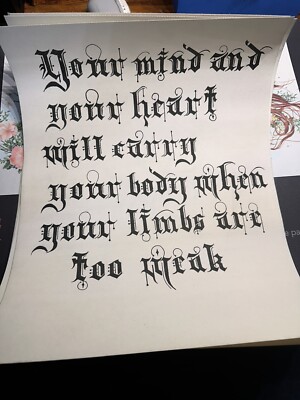 Your mind and
your heart
will carry
your body when
your limbs are
too weak